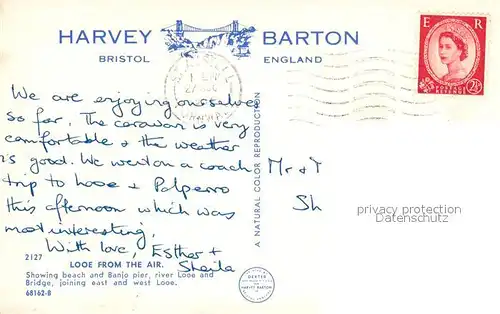 HARVEY BARTON
BRISTOL ENGLAND
E R
POSTAGE REVENUE
2½D
We are enjoying ourselves
so far. The caravan is very
comfortable & the weather
is good. We went on a coach
trip to Looe & Polperro
this afternoon which was
most interesting.
With love, Esther +
Sheila
2127
LOOE FROM THE AIR.
Showing beach and Banjo pier, river Looe and
Bridge, joining east and west Looe.
68162-B
A NATURAL COLOR REPRODUCTION
DEXTER
HARVEY BARTON
Mr &
Sh
privacy protection
Datenschutz